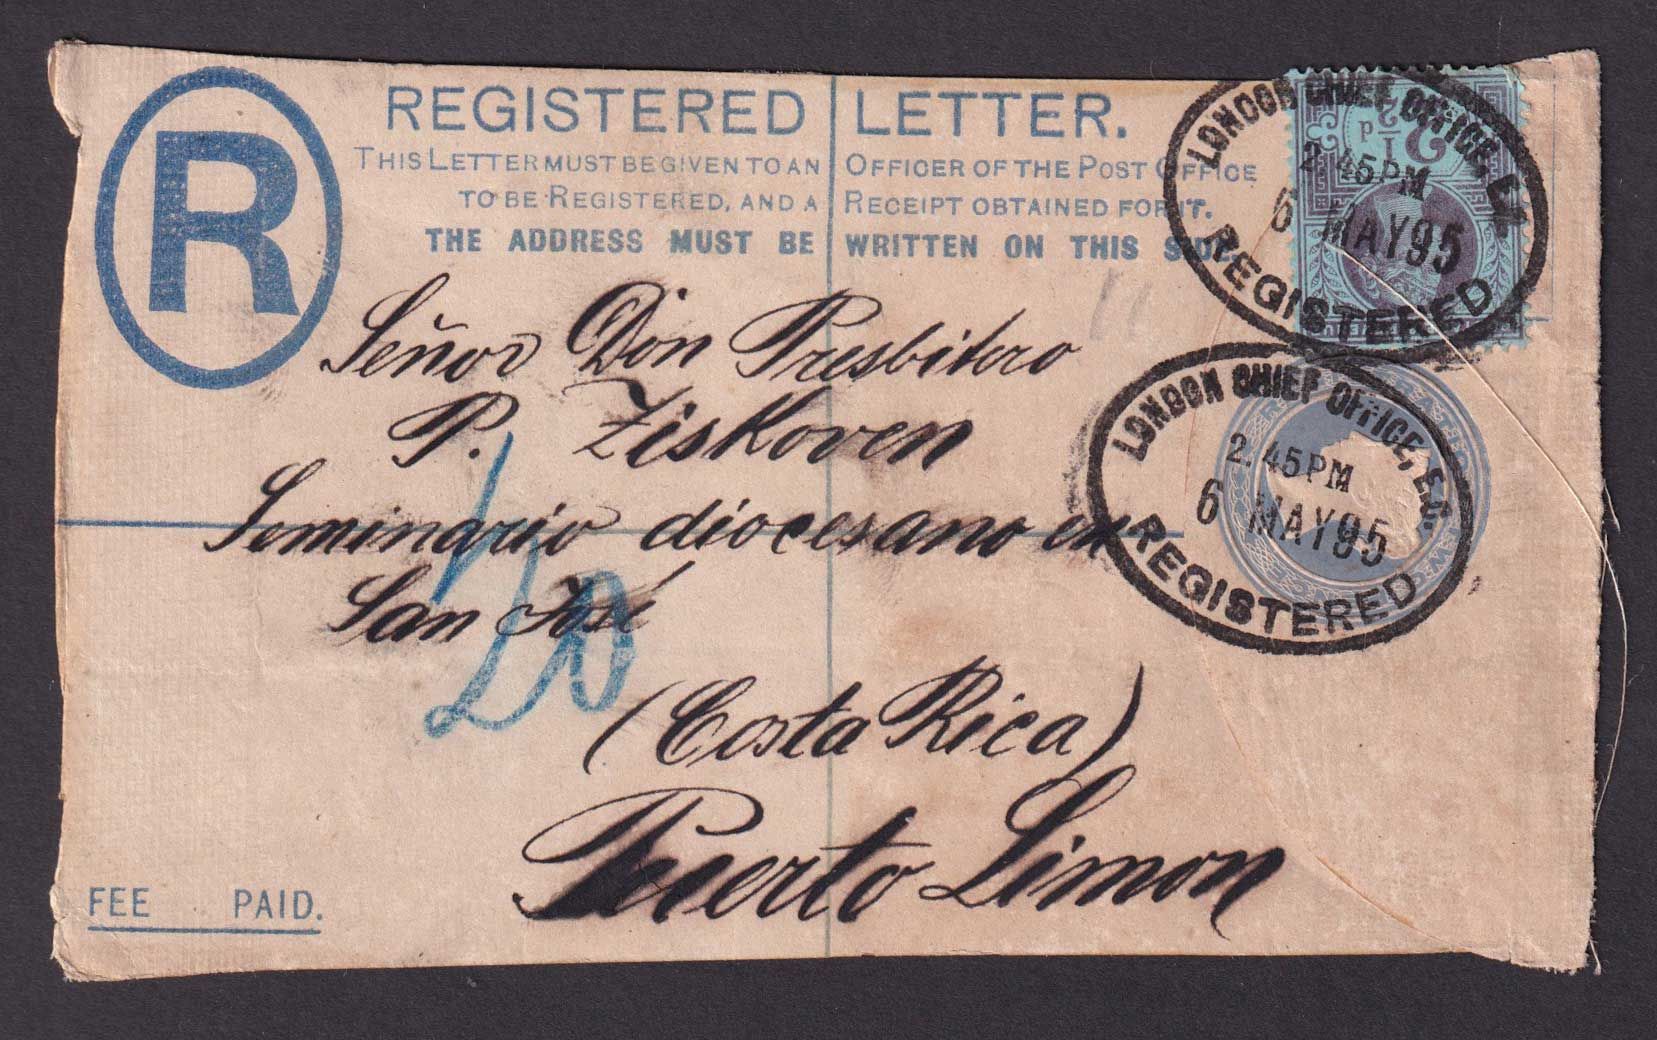 R
REGISTERED LETTER.
THIS LETTER MUST BE GIVEN TO AN OFFICER OF THE POST OFFICE
TO BE REGISTERED, AND A RECEIPT OBTAINED FOR IT.
THE ADDRESS MUST BE WRITTEN ON THIS SIDE.
2½d
LONDON CHIEF OFFICE, E.C.
2.45PM
6 MAY 95
REGISTERED
LONDON CHIEF OFFICE, E.C.
2.45PM
6 MAY 95
REGISTERED
Señor Don Presbitero
P. Ziskoven
Seminario diocesano en
San José
(Costa Rica)
Puerto Limon
FEE PAID.